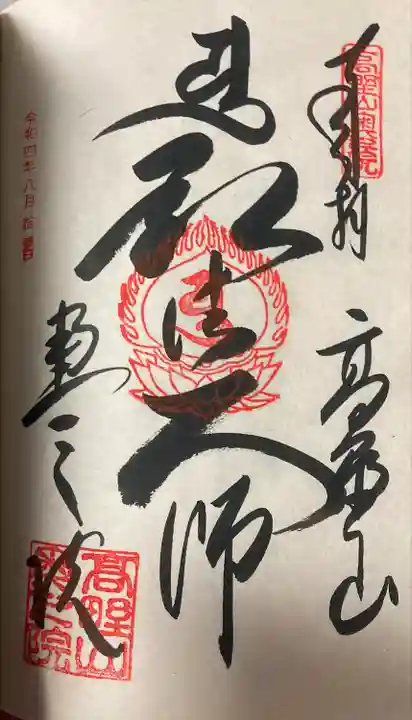 高野山奥之院
奉拝
高野山
弘法大師
奥之院
高野山
奥之院
令和四年八月拾